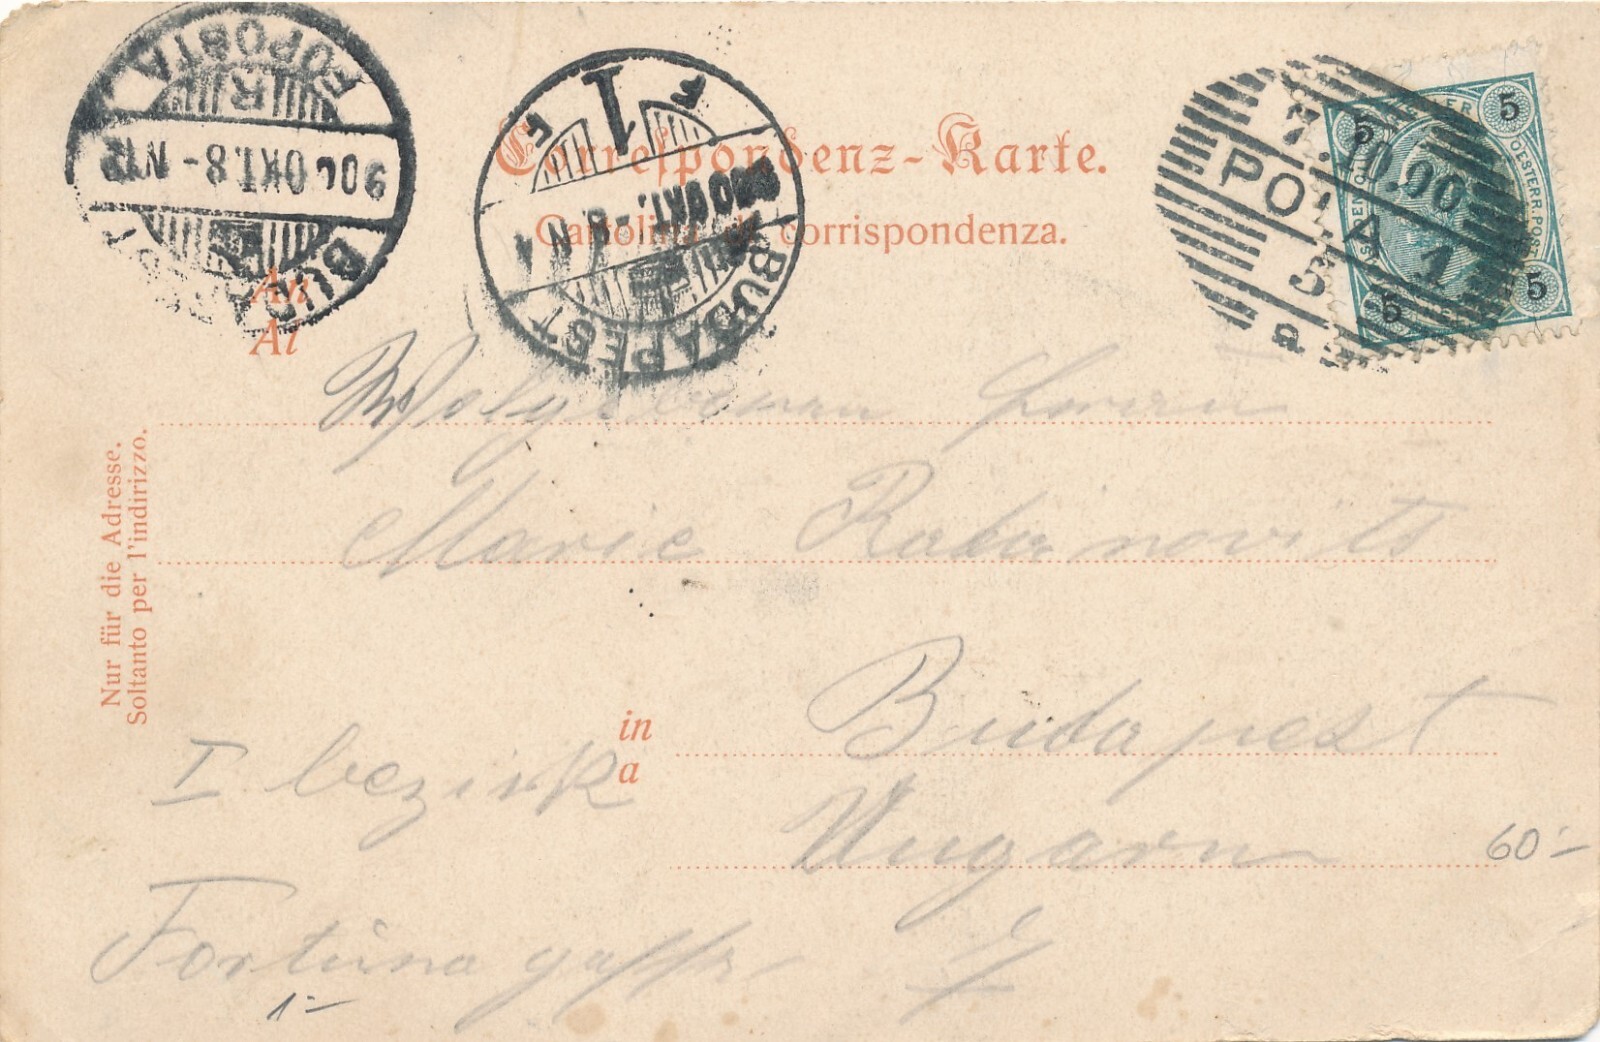 BUDAPEST
FŐPOSTA
900 OKT. 8 - N12
BUDAPEST
1
900 OKT. - 8 N 4
7.10.00
POLA 1
3
a
5
5
5
5
OESTERR. POST
Correspondenz-Karte.
Cartolina di corrispondenza.
An
Al
Wolgeboren
Marie Rabinovits
Nur für die Adresse.
Soltanto per l'indirizzo.
in
a
Budapest
I bezirk
Ungarn
60-
Fortuna gasse
1-